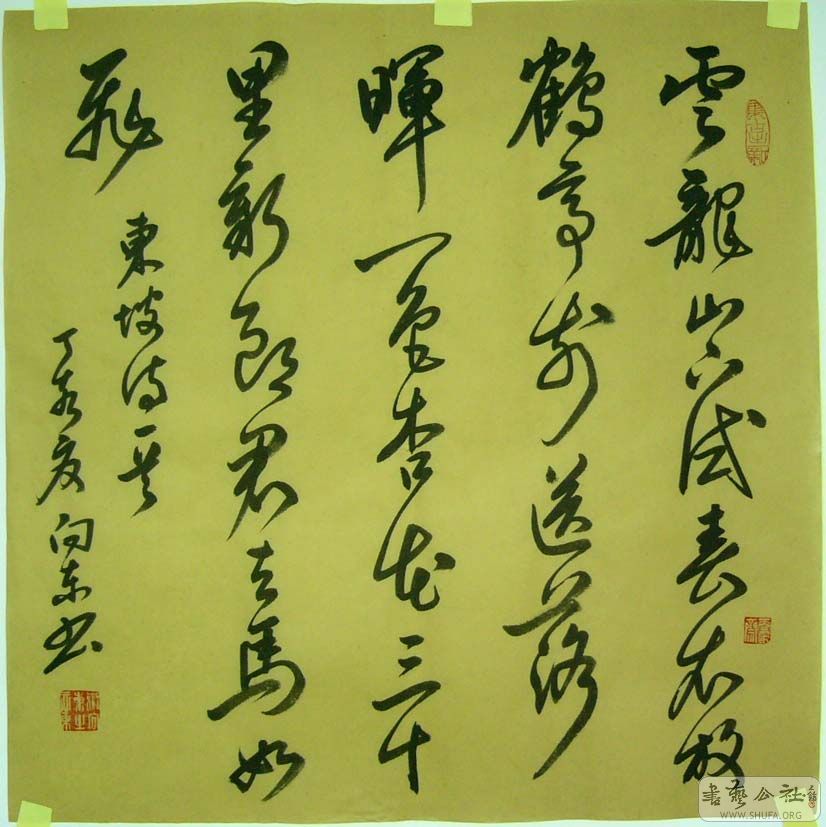 雲龍山下試春衣放
鶴亭前送落
暉一色杏花三十
里新郎君去馬如
飛
東坡詩一首
丁亥夏向东书
書藝公社
WWW.SHUFA.ORG